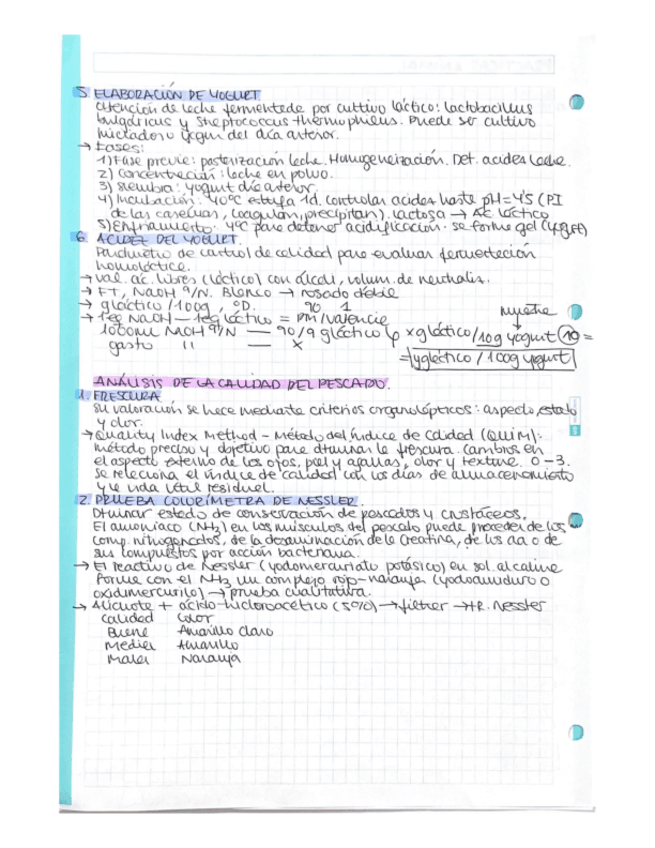 5. ELABORACIÓN DE YOGURT
Obtención de leche fermentada por cultivo láctico: lactobacillus
bulgaricus y Streptococcus thermophilus. Puede ser cultivo
iniciador o yogur del día anterior.
→ Fases:
1) Fase previa: pasterización leche. Homogeneización. Det. acidez leche.
2) Concentración: leche en polvo.
3) Siembra: yogurt día anterior.
4) Incubación: 40ºC estufa 1d. Controlar acidez hasta pH=4'5 (PI
de las caseínas, coagulan, precipitan). Lactosa → Ác. láctico
5) Enfriamiento: 4ºC para detener acidificación. Se forma gel
6. ACIDEZ DEL YOGURT.
Parámetro de control de calidad para evaluar fermentación
homoláctica.
→ Val. ac. libres (láctico) con álcali, volum. de neutraliz.
→ FT, NaOH 9/N. Blanco → rosado débil
→ gláctico/100g, ºD. 90 1
→ 1eq NaOH — 1eq láctico = PM/valencia
muestra
1000ml NaOH 9/N — 90/9 gláctico × gláctico/10g yogurt (10) =
gasto " — x
= y gláctico / 100g yogurt
ANÁLISIS DE LA CALIDAD DEL PESCADO.
1. FRESCURA
Su valoración se hace mediante criterios organolépticos: aspecto, estado
y olor.
→ Quality Index Method - Método del índice de calidad (QUIM):
método preciso y objetivo para dtrminar la frescura. Cambios en
el aspecto externo de los ojos, piel y agallas, olor y textura. 0-3.
Se relaciona el índice de calidad con los días de almacenamiento
y la vida útil residual.
2. PRUEBA COLORÍMETRA DE NESSLER.
Dtrminar estado de conservación de pescados y crustáceos.
El amoniaco (NH3) en los músculos del pescado puede proceder de los
comp. nitrogenados, de la desaminación de la creatina, de los aa o de
sus compuestos por acción bacteriana.
→ El reactivo de Nessler (yodomercuriato potásico) en sol. alcalina
forma con el NH3 un complejo rojo-naranja (yodoamiduro o
oxidimercurilo) → prueba cualitativa.
→ Alícuota + ácido tricloroacético (5%) → filtrar → +R. Nessler
Calidad Color
Buena Amarillo claro
Media Amarillo
Mala Naranja